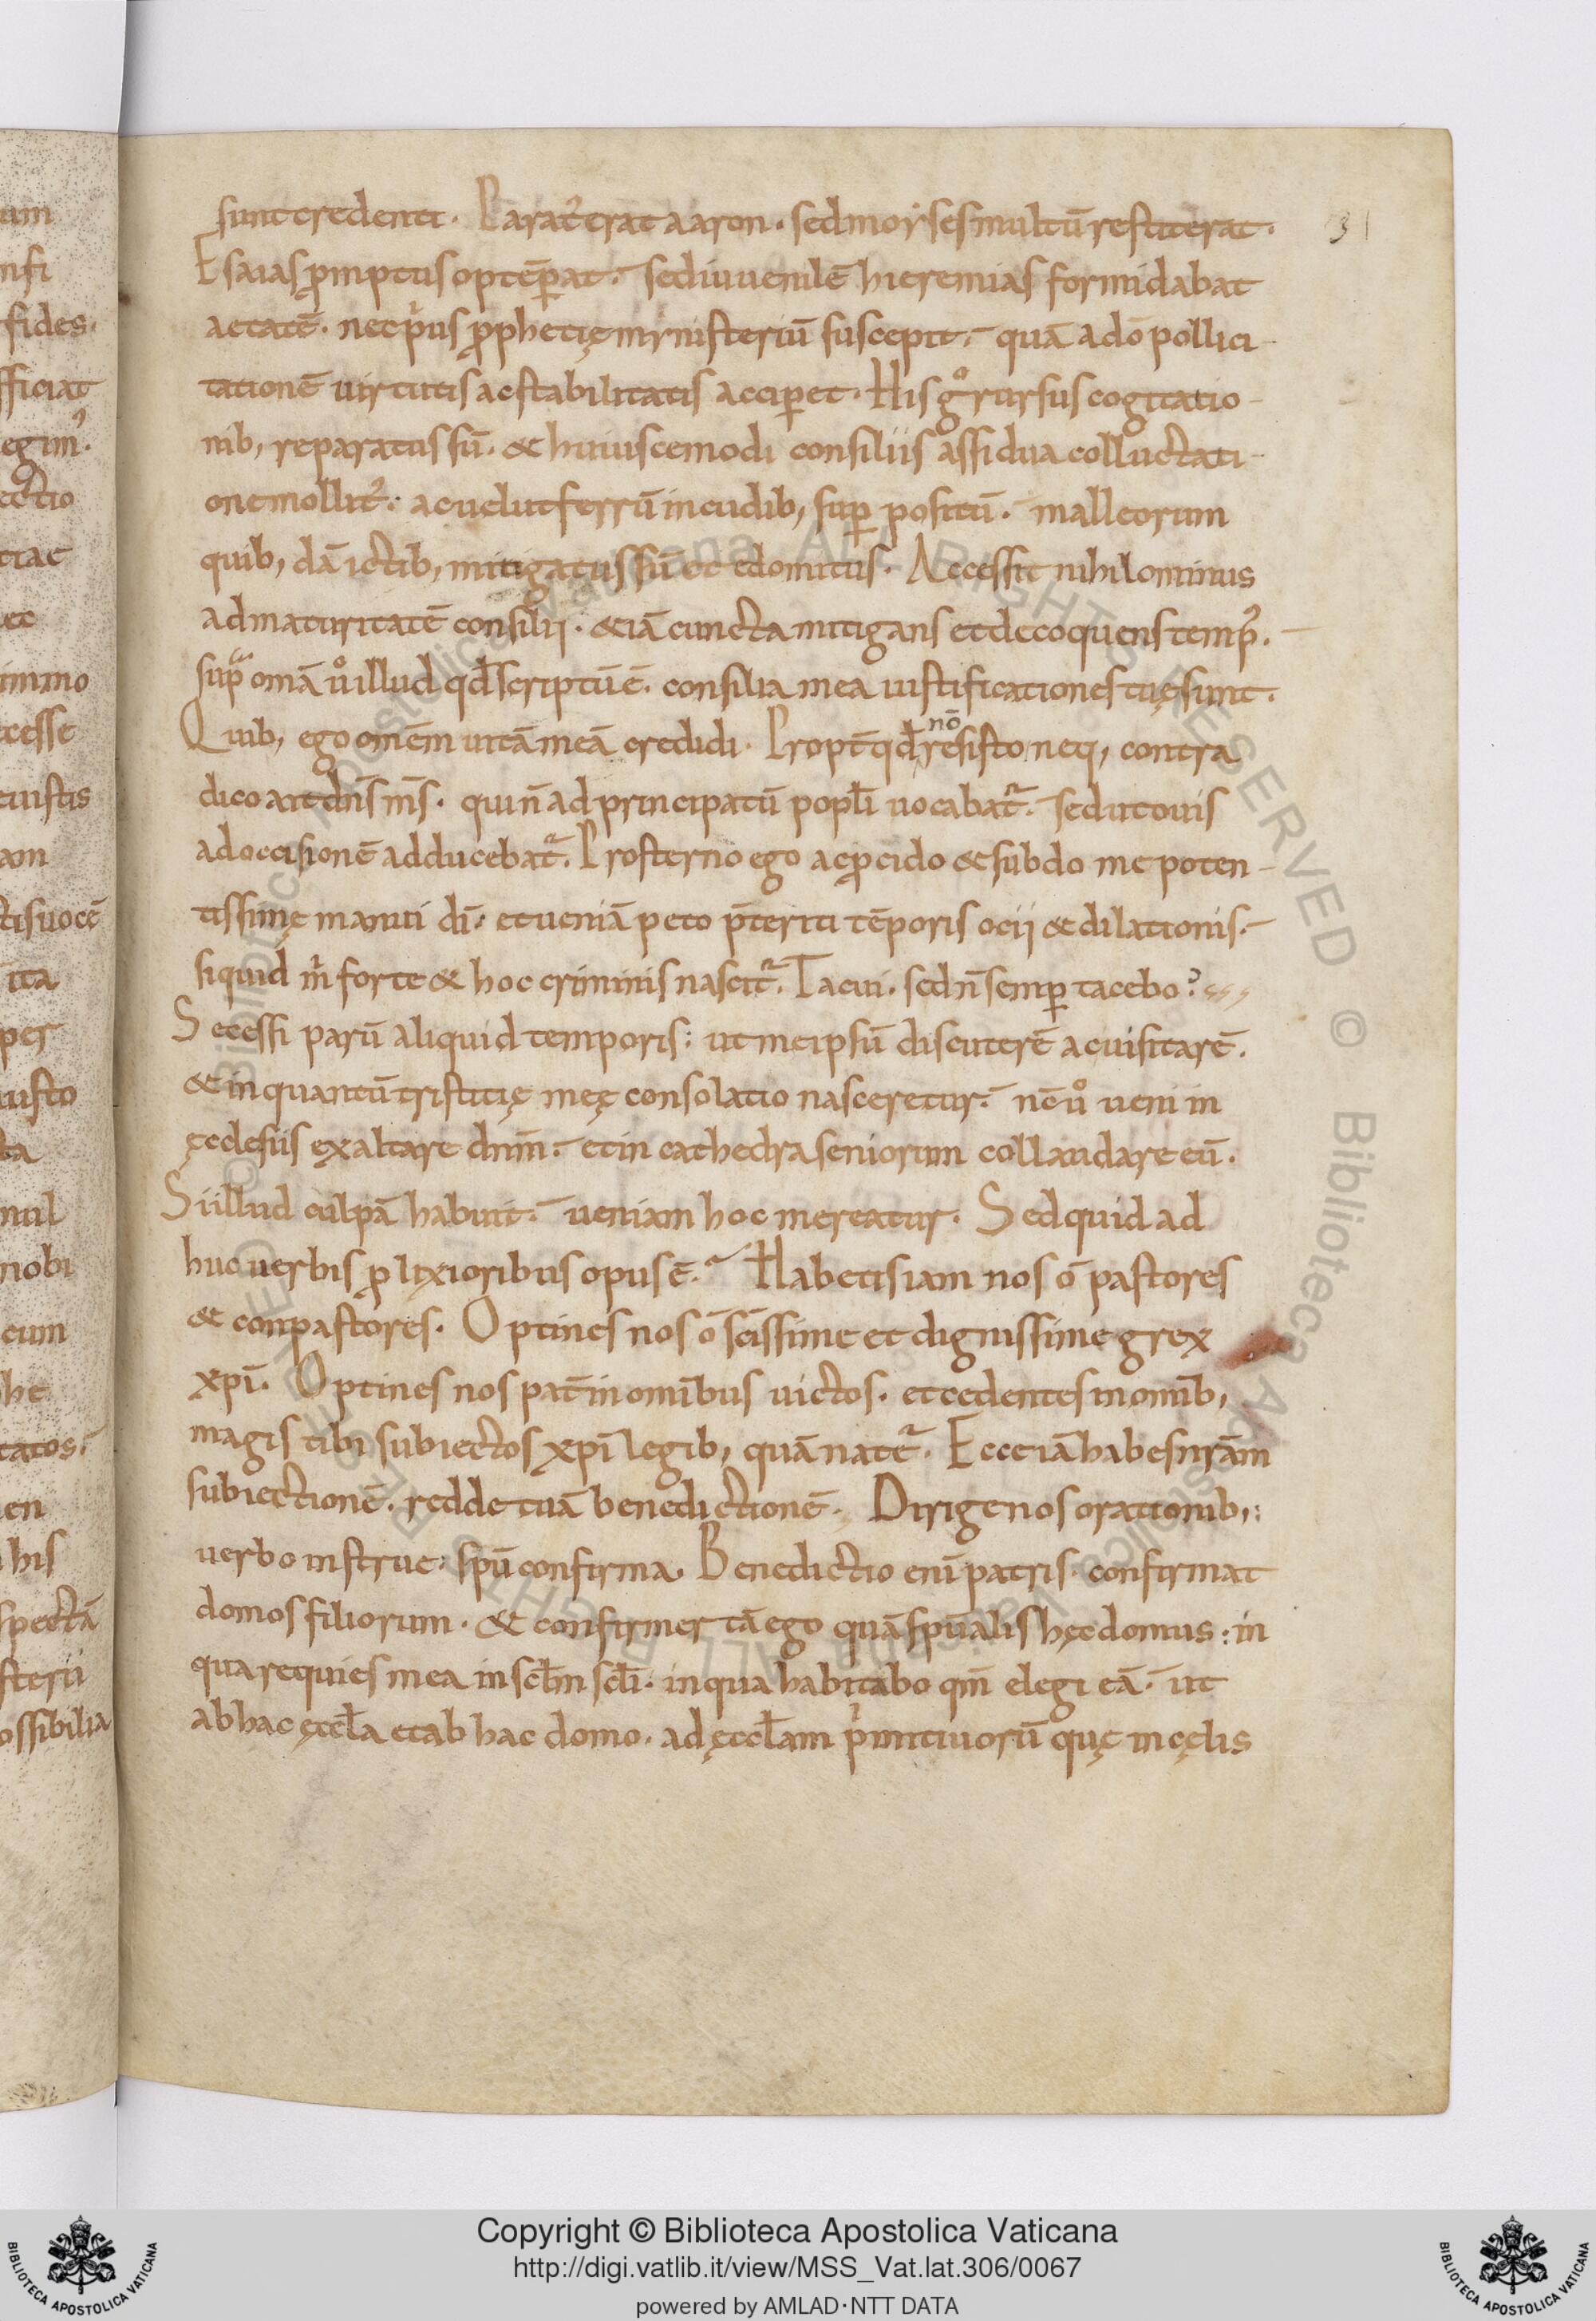 sunt credenti. Parat᷑ erat aaron. sed moyses multū restiterat.
Esaias ꝓmptus optēꝑat. sed iuuenilē hieremias formidabat
aetatē. nec pͥus ꝓphetię mynisteriū suscepit. quā a dō pollici-
tationē uirtutis ac stabilitatis acciꝑet. His gͦ rursus cogitatio-
nib; reparatus sū. & huiuscemodi consiliis assidua colluctati-
one mollit᷑. ac uelut ferrū incudib; suꝑ positū. malleorum
quib; dā ictib; mitigatus sū et edomitus. Accessit nihilominus
ad maturitatē consilij. & iā cuncta mitigans et decoquens temp᷒.
supᵃ om̄a ů illud qđ scriptū ē. consilia mea iustificationes tuę sunt.
Quib; ego omēm uitā meā credidi. Propt̄ qđ nō resisto neq; contra
dico ait dn̄s m̄s. qui n̄ ad principatū popłi uocabat᷑. sed ut ouis
ad occisionē adducebat᷑. Prosterno ego ac ꝓcido & subdo me poten-
tissimę manui dī. et ueniā peto p̄teriti tēporis ocii & dilationis.
siquid m̄ forte & hoc criminis nascit᷑. Tacui. sed n̄ semꝑ tacebo?
Secessi parū aliquid temporis: ut meipsū discuterē ac uisitarē.
& in quantū tristitię meę consolatio nasceretur. nc̄ ů ueni in
ęcclesiis exaltare dnm̄. et in cathedra seniorum collaudare eū.
Si illud culpā habuit. ueniam hoc mereatur. Sed quid ad
huc uerbis ꝓlixioribus opus ē. Habetis iam nos ō pastores
& conpastores. Optines nos ō sc̄issime et dignissime grex
xp̄i. Optines nos pat̄ in omībus uictos. et cedentes in omīb;
magis tibi subiectos xp̄i legib; quā nat᷑e. Ecce iā habes nr̄am
subiectionē. redde tuā benedictionē. Dirige nos orationib;:
uerbo instrue: sp̄u confirma. Benedictio enī patris. confirmat
domos filiorum. & confirmer tā ego quā sp̄ualis hęc domus: in
qua requies mea in scłm scłi. in qua habitabo qm̄ elegi eā. ut
ab hac ęccła et ab hac domo. ad ęcclam pͥmitiuorū quę in cęlis
31
Copyright © Biblioteca Apostolica Vaticana
http://digi.vatlib.it/view/MSS_Vat.lat.306/0067
powered by AMLAD·NTT DATA